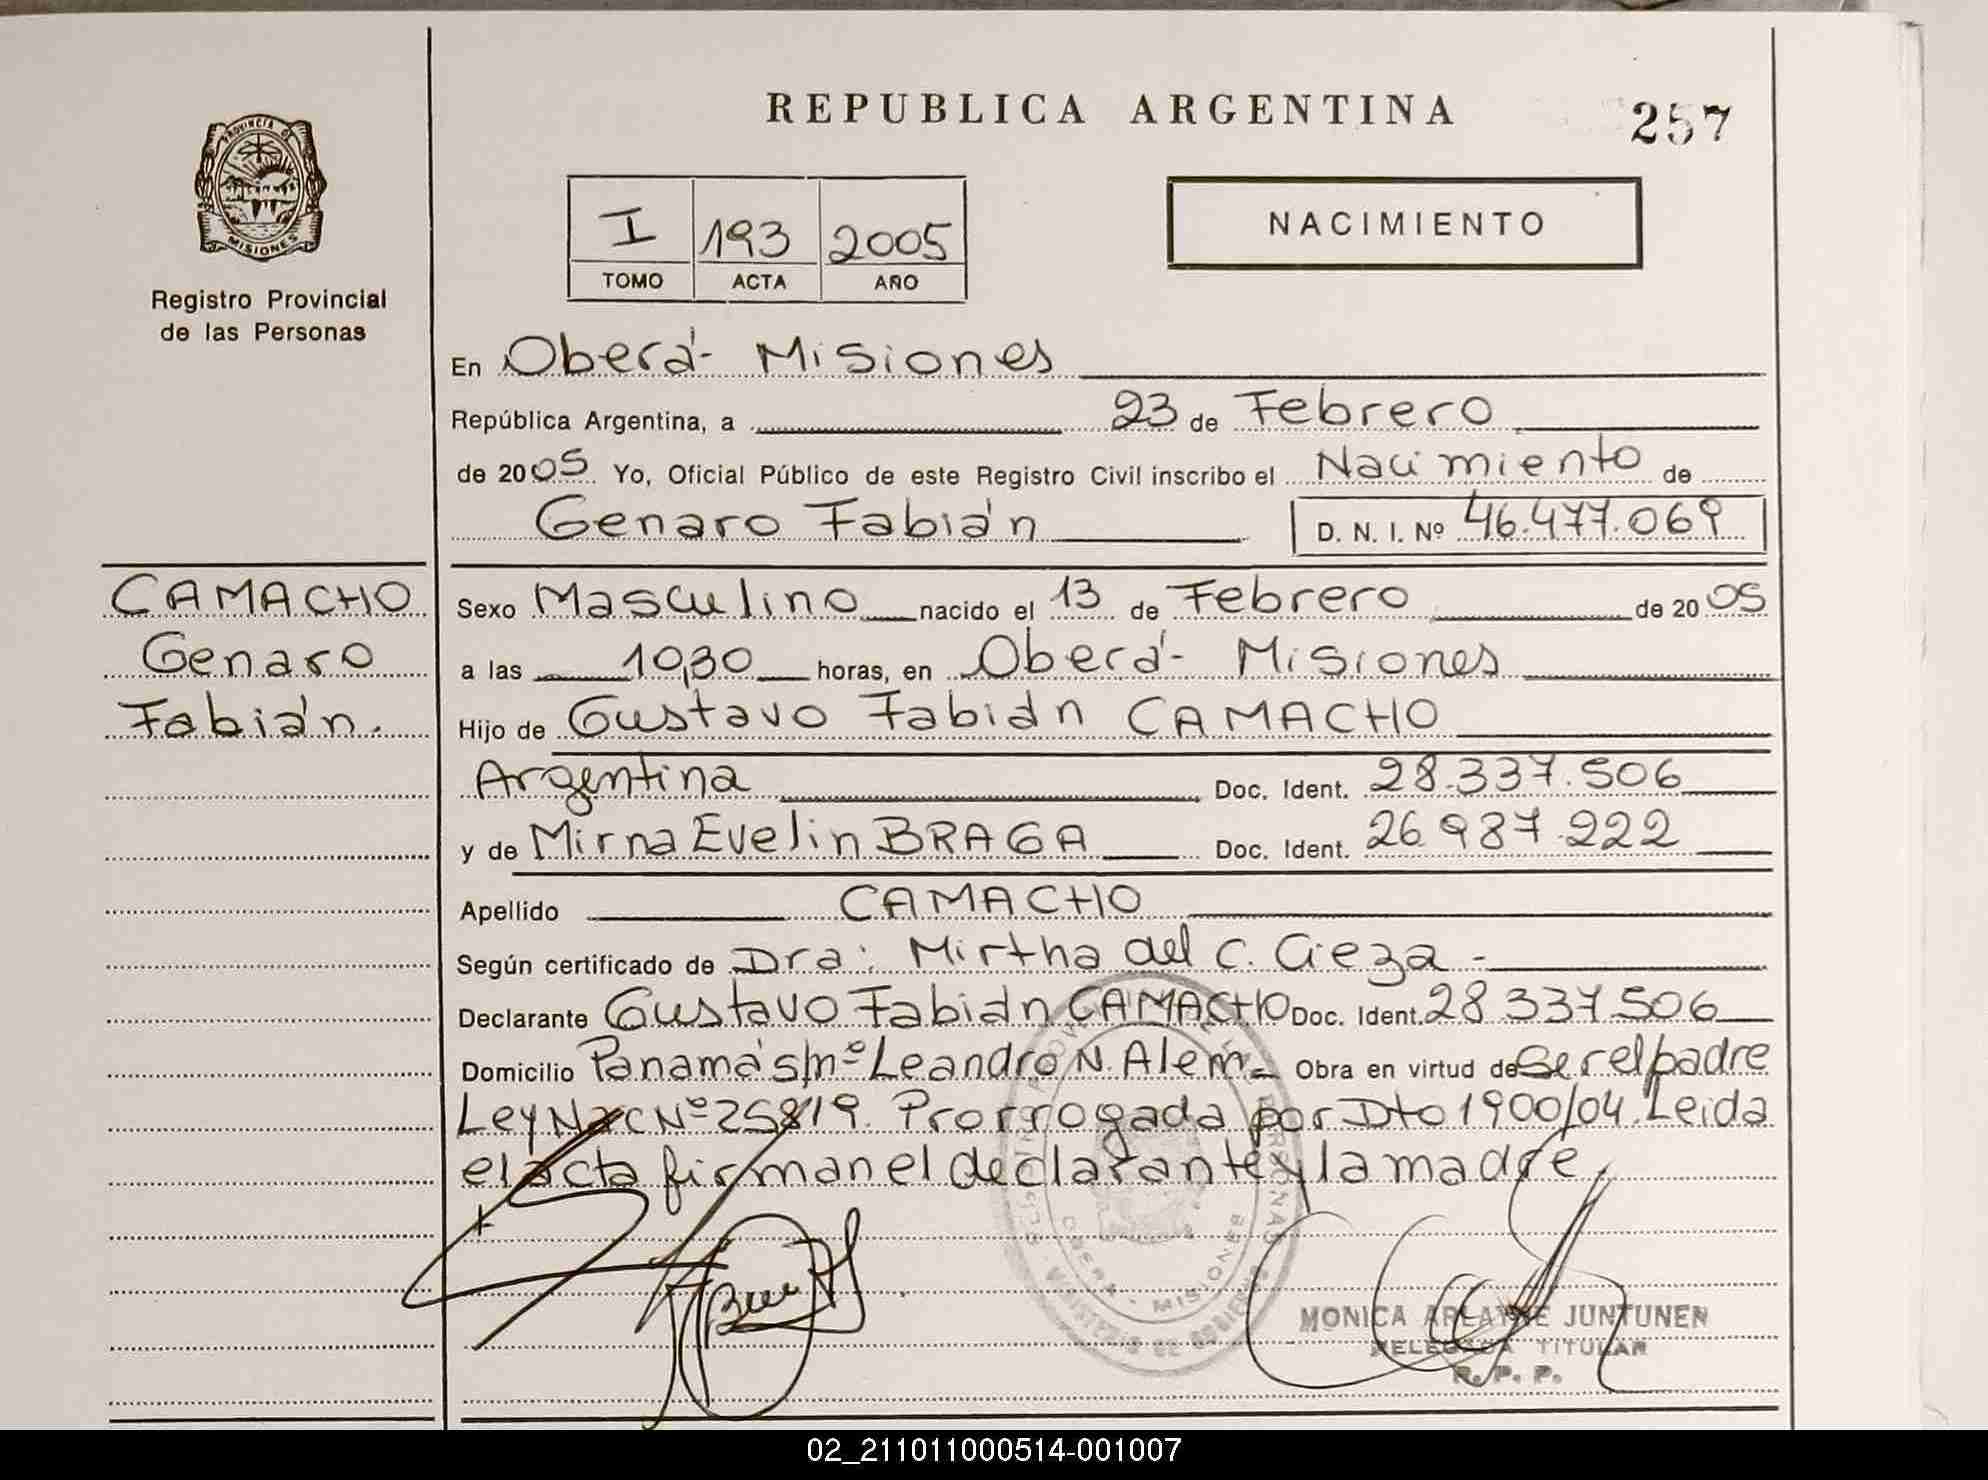 REPUBLICA ARGENTINA
257
PROVINCIA DE
MISIONES
Registro Provincial
de las Personas
I 193 2005
TOMO ACTA AÑO
NACIMIENTO
En Oberá- Misiones
República Argentina, a 23 de Febrero
de 2005 Yo, Oficial Público de este Registro Civil inscribo el Nacimiento de
Genaro Fabián D. N. I. Nº 46.477.069
CAMACHO
Genaro
Fabián.
Sexo Masculino nacido el 13 de Febrero de 2005
a las 10,30 horas, en Oberá- Misiones
Hijo de Gustavo Fabián CAMACHO
Argentina Doc. Ident. 28.337.506
y de Mirna Evelin BRAGA Doc. Ident. 26.987.222
Apellido CAMACHO
Según certificado de Dra: Mirtha del C. Cieza -
Declarante Gustavo Fabián CAMACHO Doc. Ident. 28.337.506
Domicilio Panamá s/nº Leandro N. Alem- Obra en virtud de Ser el padre
Ley Nac Nº 25819. Prorrogada por Dto 1900/04. Leida
el acta firman el declarante y la madre
OBERA - MISIONES
MONICA ARLAYNE JUNTUNEN
DELEGADA TITULAR
R. P. P.
02_211011000514-001007